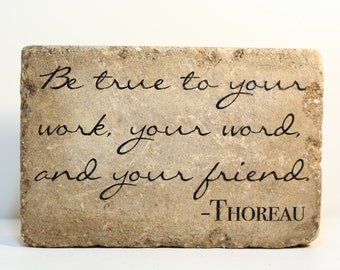 Be true to your
work, your word,
and your friend.
-THOREAU